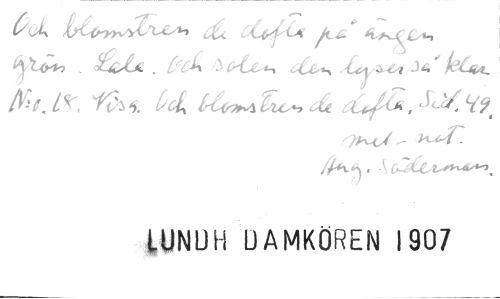 Och blomstren de dofta på ängen
grön. Lala. Och solen den lyser så klar
N:o. 18. Visa. Och blomstren de dofta. Sid. 49.
mel-not.
Aug. Söderman.
LUNDH DAMKÖREN 1907